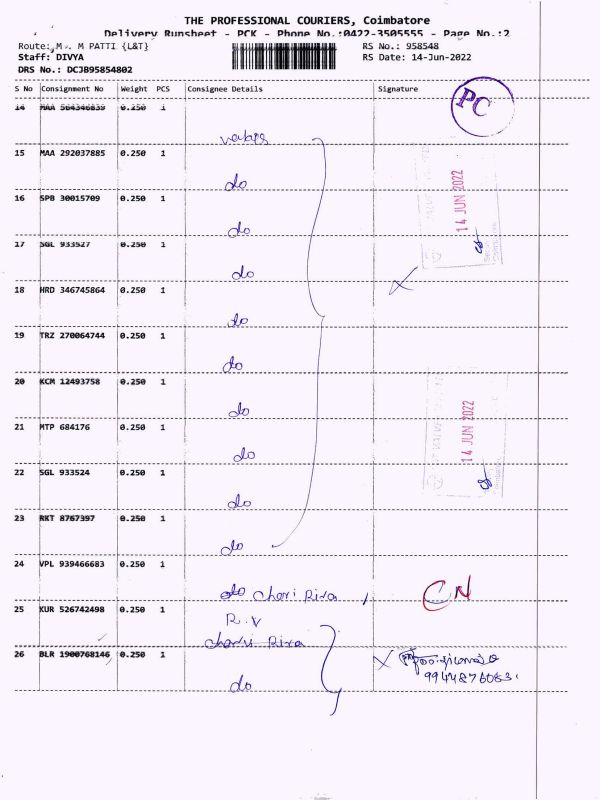 THE PROFESSIONAL COURIERS, Coimbatore
Delivery Runsheet - PCK - Phone No.:0422-3505555 - Page No.:2
Route: M. M PATTI {L&T}
RS No.: 958548
Staff: DIVYA
RS Date: 14-Jun-2022
DRS No.: DCJB95854802
S No Consignment No Weight PCS Consignee Details Signature
PC
14 MAA 564346839 0.250 1
15 MAA 292037885 0.250 1
do
16 SPB 30015709 0.250 1
do
14 JUN 2022
17 SGL 933527 0.250 1
do
18 HRD 346745864 0.250 1
do
19 TRZ 270064744 0.250 1
do
20 KCM 12493758 0.250 1
do
21 MTP 684176 0.250 1
do
14 JUN 2022
22 SGL 933524 0.250 1
do
23 RKT 8767397 0.250 1
do
24 VPL 939466683 0.250 1
do Chari Riva
CN
25 KUR 526742498 0.250 1
R.V
Chari Riva
26 BLR 1900768146 0.250 1
do